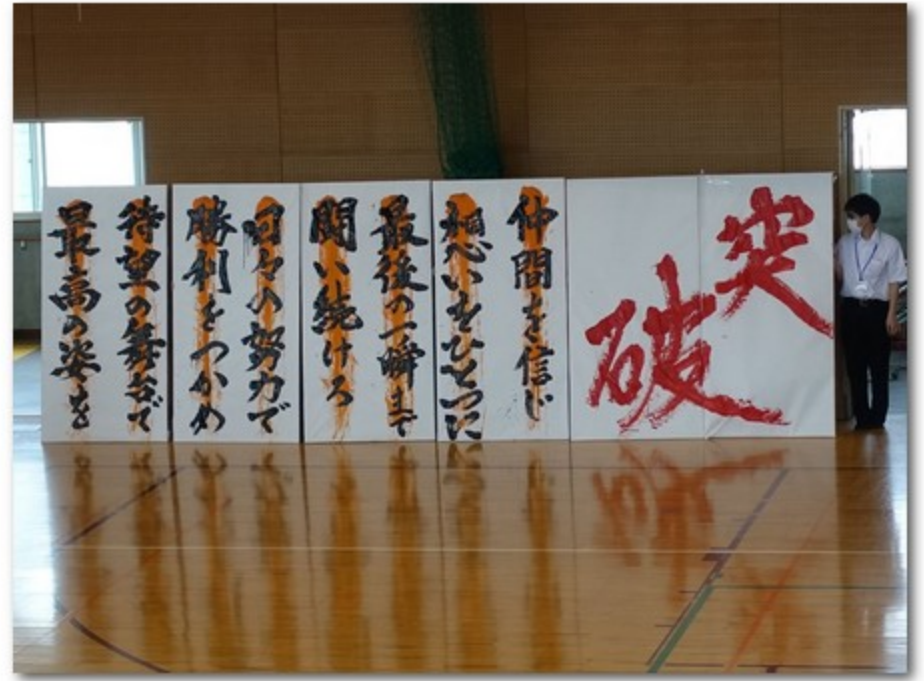 突破
仲間を信じ
想いをひとつに
最後の一瞬まで
闘い続けろ
日々の努力で
勝利をつかめ
待望の舞台で
最高の姿を